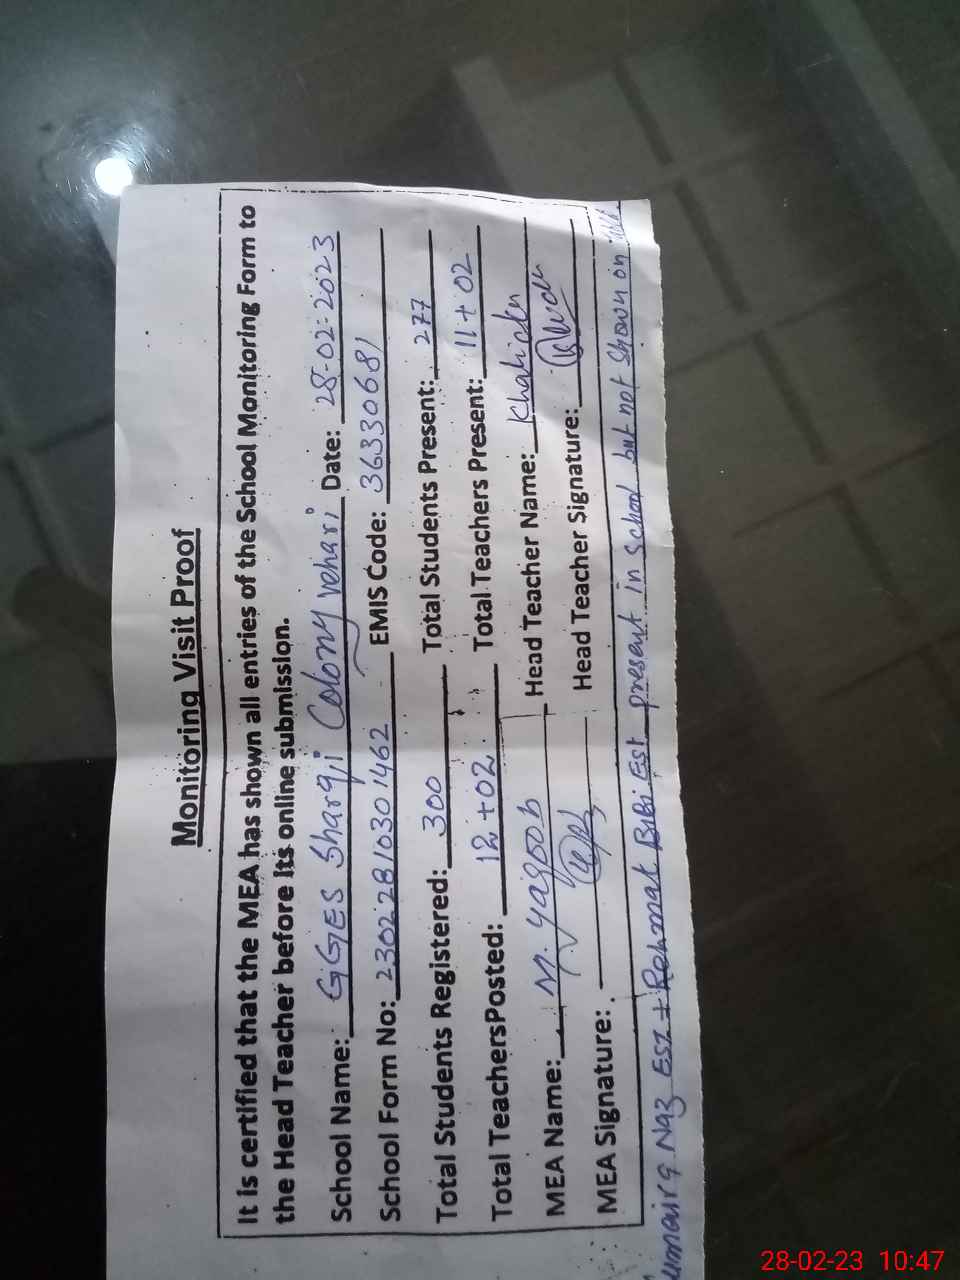 Monitoring Visit Proof
It is certified that the MEA has shown all entries of the School Monitoring Form to
the Head Teacher before its online submission.
School Name: GGES Sharqi Colony vehari Date: 28-02-2023
School Form No: 2302281030 1462 EMIS Code: 36330681
Total Students Registered: 300 Total Students Present: 277
Total TeachersPosted: 12 +02 Total Teachers Present: 11+02
MEA Name: M. yaqoob Head Teacher Name:
MEA Signature: Head Teacher Signature:
umaira Naz Est + Rehmat BiBi Est present in school but not shown on
28-02-23 10:47